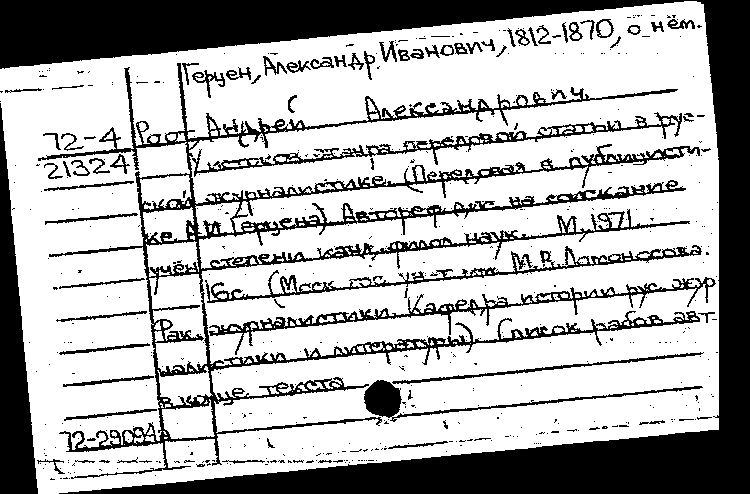 Герцен, Александр Иванович, 1812-1870, о нём.
72-4 Рост Андрей Александрович.
21324 У истоков жанра передовой статьи в рус-
ской журналистике. (Передовая в публицисти-
ке А.И. Герцена). Автореф. дис. на соискание
учён. степени канд. филол. наук. М., 1971.
16с. (Моск. гос. ун-т им. М.В. Ломоносова.
Фак. журналистики. Кафедра истории рус. жур
налистики и литературы). Список работ авт.
в конце текста
72-29094а